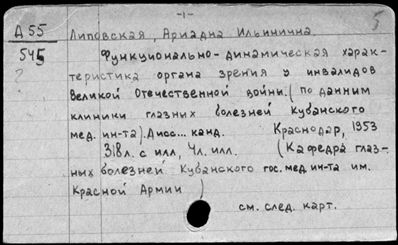 -1-
5
Д 55
545
Липовская, Ариадна Ильинична.
Функционально-динамическая харак-
теристика органа зрения у инвалидов
Великой Отечественной войны. (по данным
клиники глазных болезней Кубанского
мед. ин-та). Дисс... канд. Краснодар, 1953
318л. с илл, 4л. илл. (Кафедра глаз-
ных болезней Кубанского гос. мед. ин-та им.
Красной Армии)
см. след. карт.